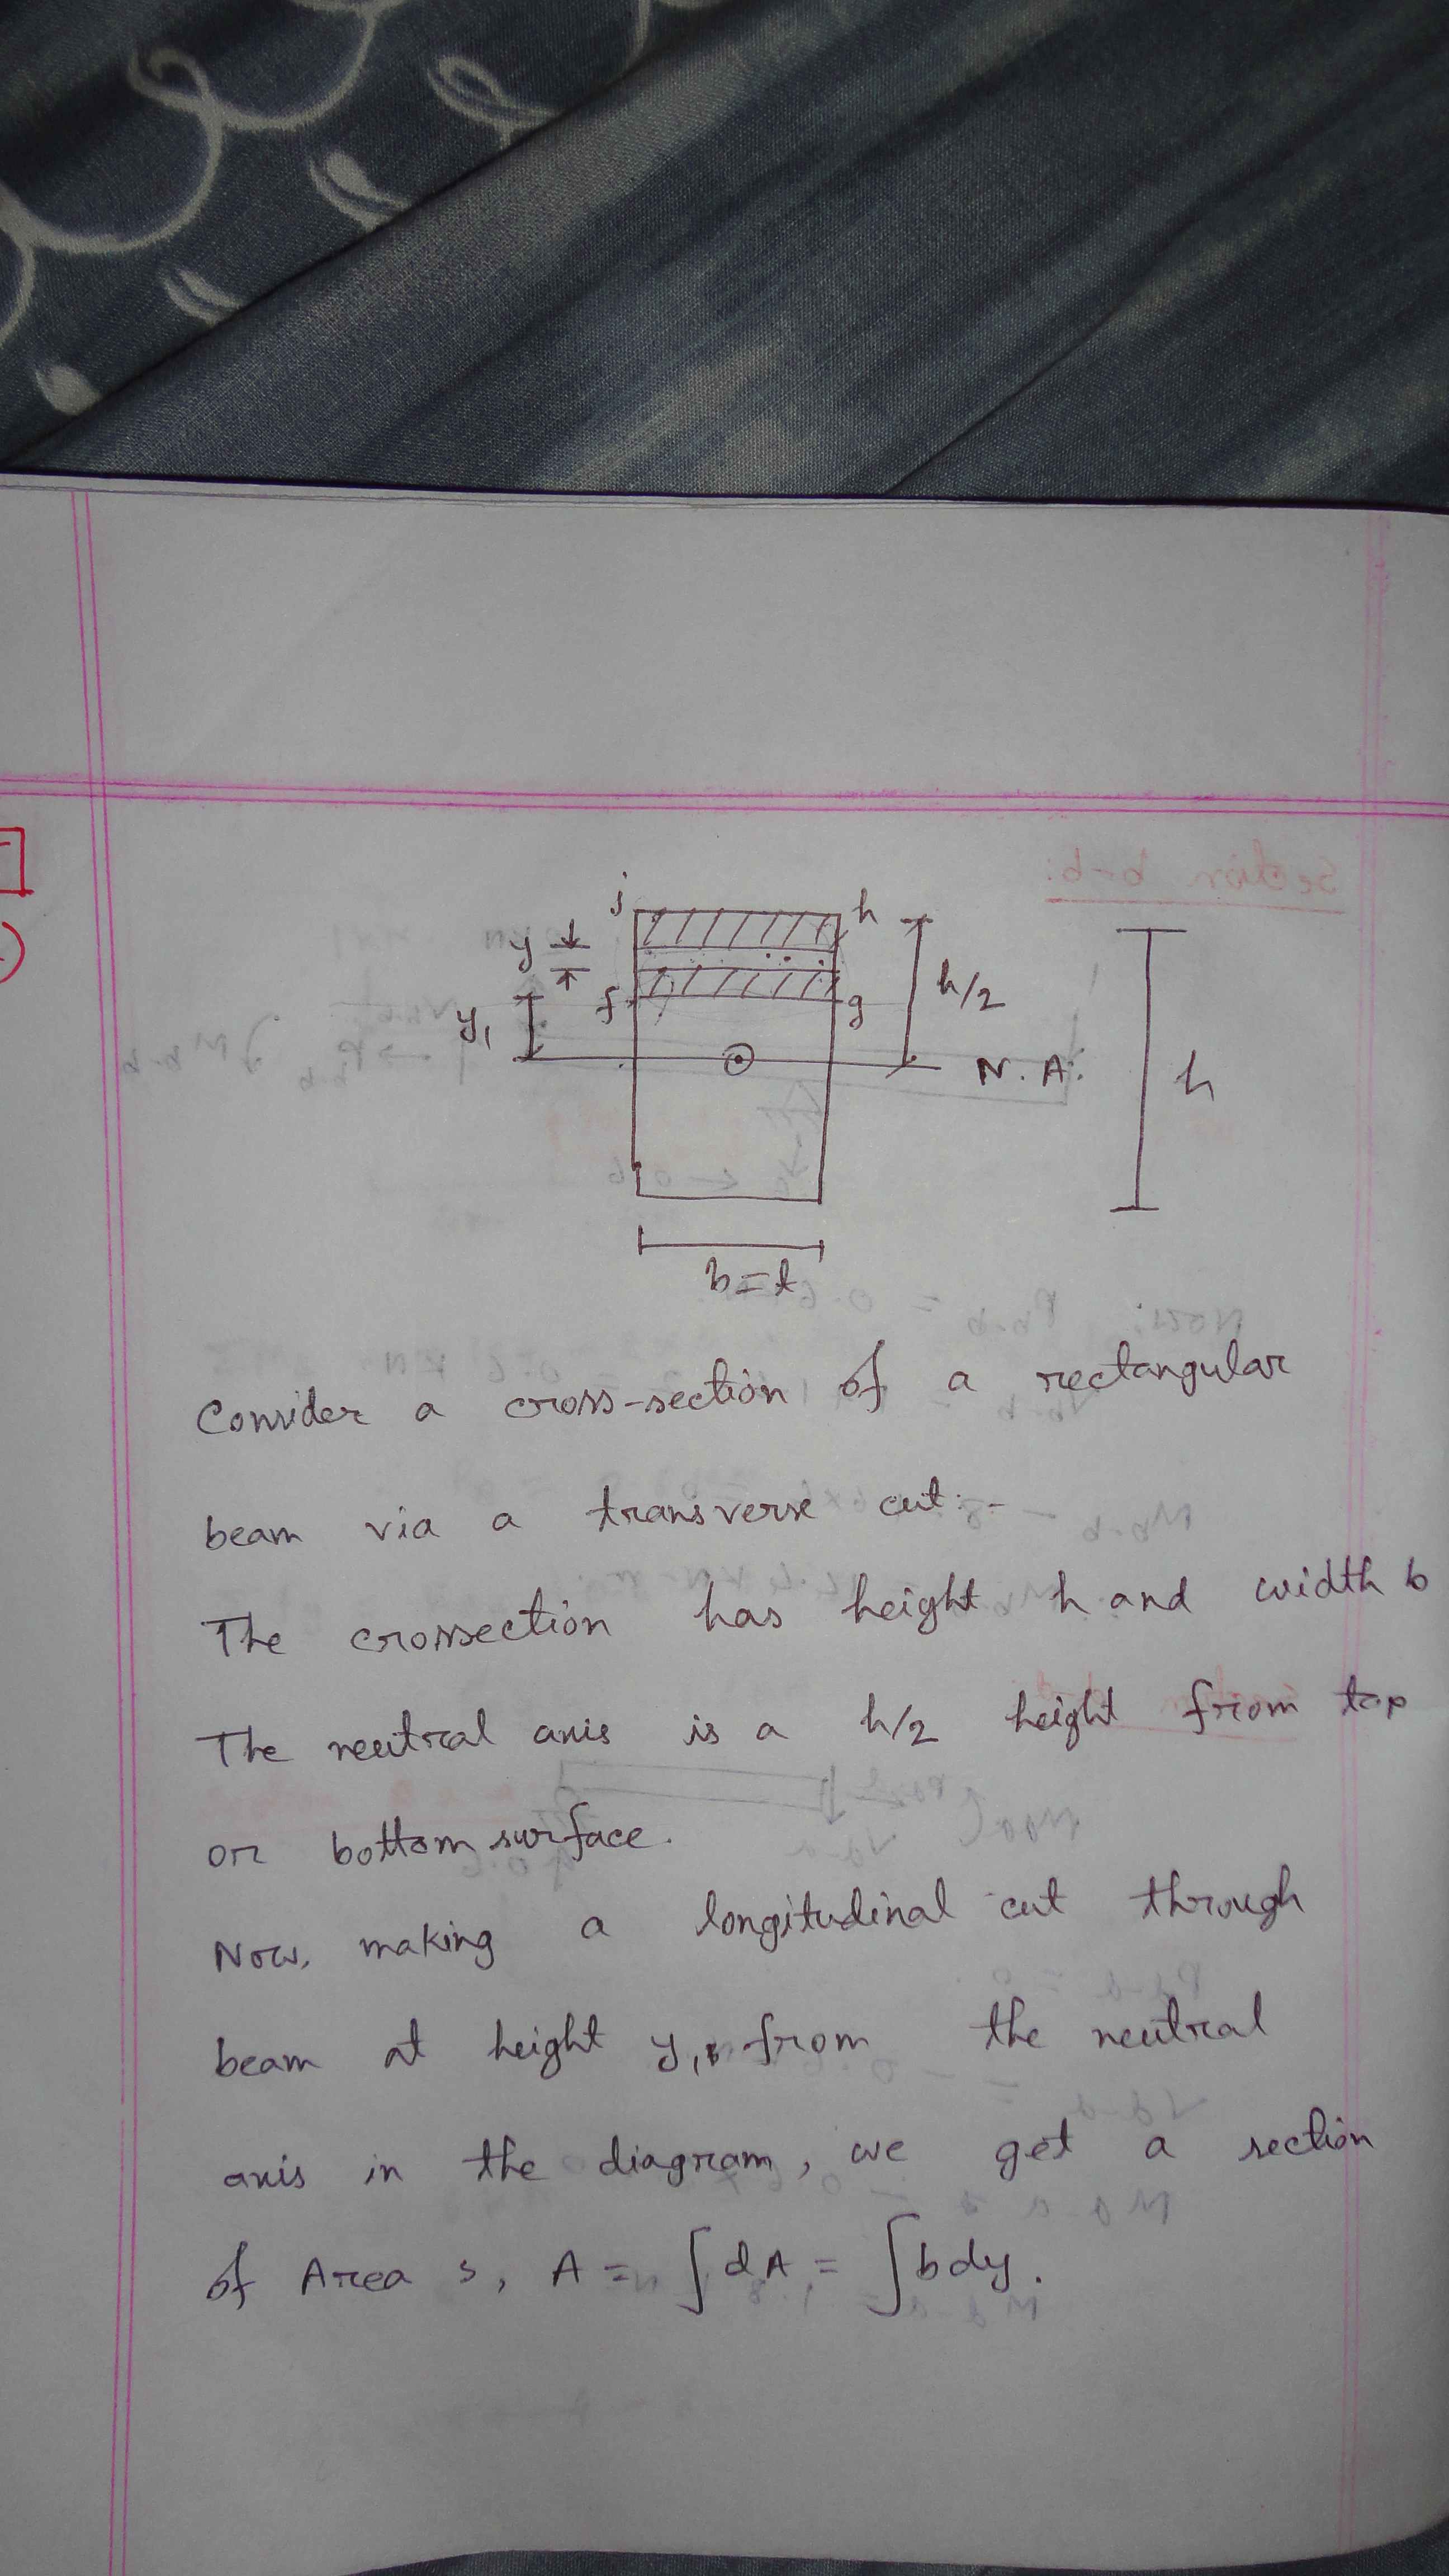 j
h
y
h/2
f
g
y₁
N. A.
h
b=t
Consider a cross-section of a rectangular
beam via a transverse cut.-
The crossection has height h and width b
The neutral axis is a h/2 height from top
or bottom surface.
Now, making a longitudinal cut through
beam at height y₁, from the neutral
axis in the diagram, we get a section
of Area s, A = ∫dA = ∫b dy.